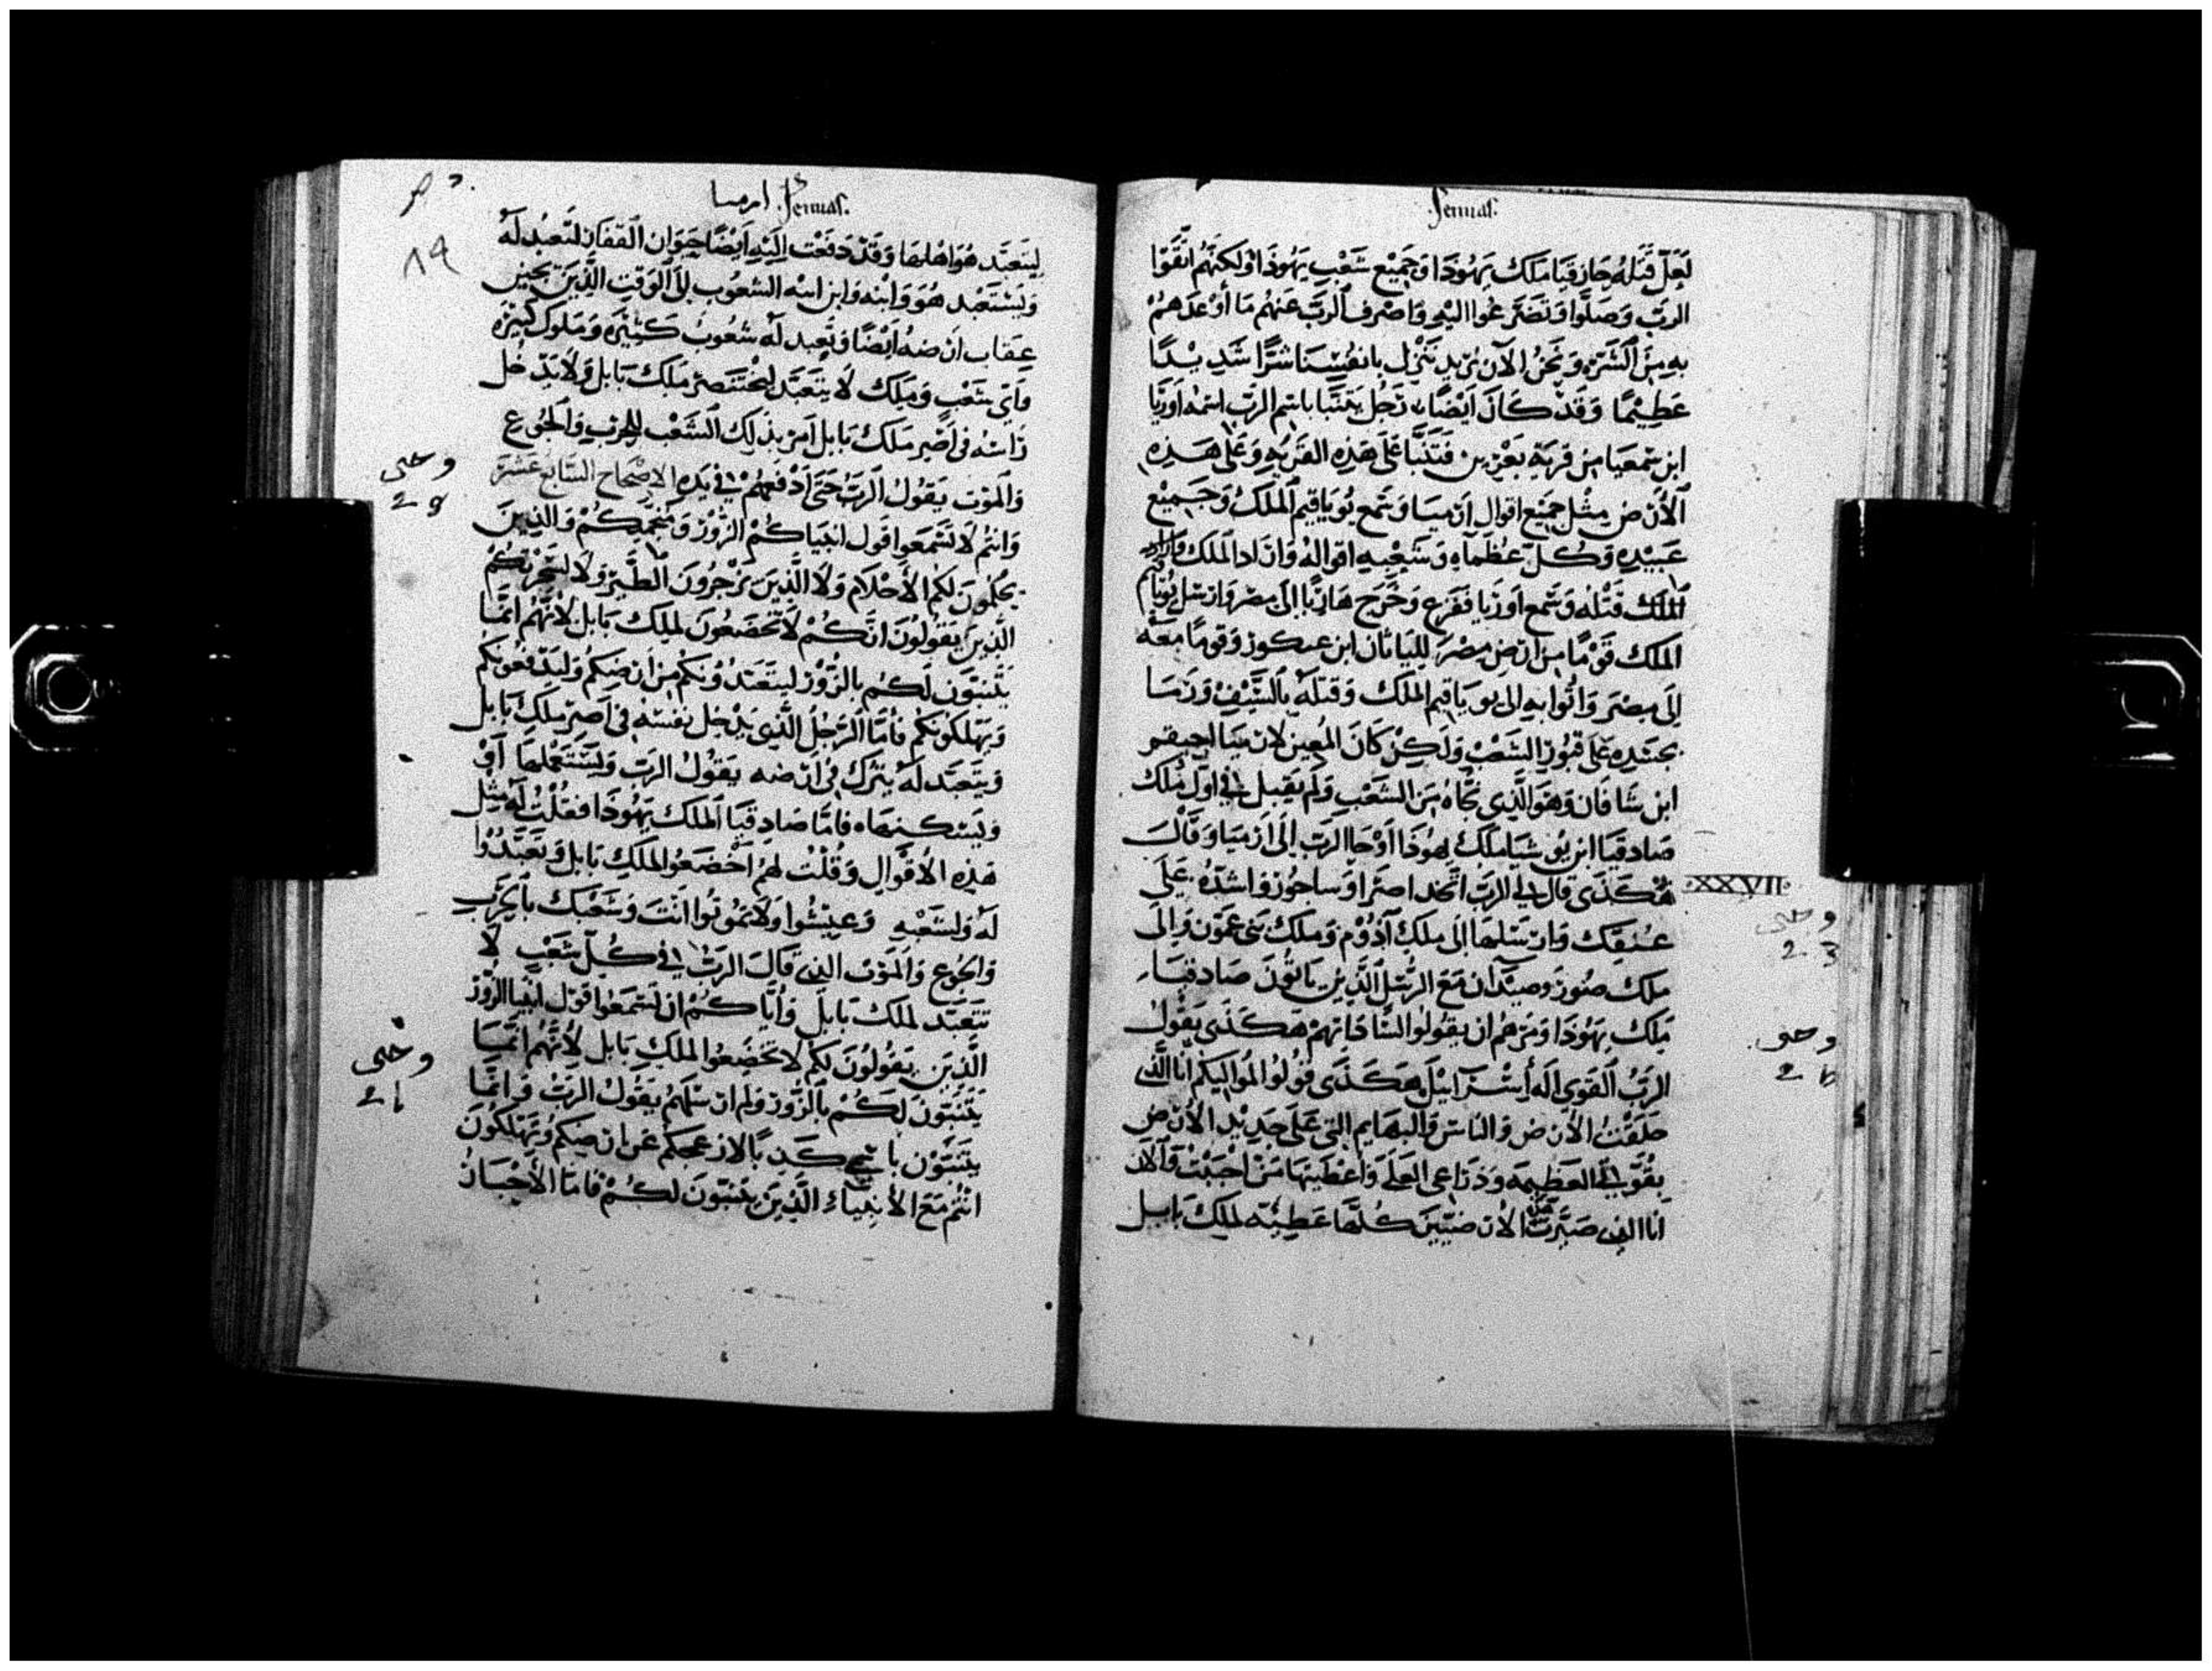 Jermias.
لَعَلَّ قَتَلَهُ حَازقيَا مَلَك يَهُودَا وَجَمِيْع شَعْبِ يَهُودَا اوْ لَكِنَّهُم اتَّقَوْا
الربّ وَصَلَّوا وَتَضَرَّعُوا اليْهِ وَاصْرِف الربّ عَنهُم مَا أوْعَدَهمْ
بهِ مِنَ الشَرّه وَنَحْنُ الآن نُرِيد نَنْزل بانفُسِنَا شرًّا شَدِيْدًا
عَطِيْمًا وَقَدْ كَانَ ايْضًا رَجُل يَتَنَبَّا باسْم الربّ اسمُه اوريّا
ابن سمعيَا من قريَة يَعْرين فَتَنَبَّا عَلَى هَذِه القريهِ وَعَلَى هَذِه
الأرْض مِثْل جمَيْع اقوال ارْميَا وَسَمع يُويَاقيم المَلكُ وَجَميْع
عَبيْدِه وَكُلّ عُظَمَآه وَشَعْبِهِ اقوالهُ وَارَاد الملك
الملك قَتْلهُ وَسَمع اوريَا فَفَزِع وَخَرَج هَاربًا الى مصْر وَارسَل يُويَاقيم
الملك قَوْمًا من ارْض مِصْرَ لليَاثان ابن عنكور وَقومًا مَعَهُ
إلَى مِصْرَ وَاتُوا بهِ الى يويَاقيم الملك وَقتلَهُ بالسَّيْفْ وَرَمَا
بجسَدِه عَلَى قبُور الشعْبْ وَلَكِنْ كَانَ المُعين لارْميَا احيقم
ابن شَافَان وَهوَ الَّذِى نجَّاهُ مِنَ الشَعْب وَلَم يَقبل فى اوّل مُلك
صَادقيَا ابن يُوشيَا مَلك يهُوذَا اوْحَا الربّ الَى ارْميَا وَقَالَ
هَكَذَى قال لى الربّ اتخد اصرًا وَساجُور وَاشدّهُ عَلَى
XXVII
عُنقك وَارْسلهَا الى ملك آدُوْم وَملك بَنى عَمّون وَالَى
وحى
23
ملك صُور وصيدَان مَعَ الرسُل الَّذِيْن يَاتُونَ صَادقيَا
مَلِك يَهُودَا وَمَرهُم ان يقُولُوا لسَادَاتهِمْ هَكَذَى يَقُولُ
وحى
الربُّ القَوى الَه أسْرَآئيْل هَكَذَى قُولُوا لمَواليكُم انَا الذِى
خَلَقْتُ الأرض وَالناسَ وَالبهَايم التى عَلَى جَدِيْد الأرْض
بقُوَّتى العَظِيمَه وَذرَاعى العَلَى وَاعْطَيْتهَا مَنْ احْبَبْت وَالآن
انَا الذِى صَيَّرتُ الأرْضَيِّينَ كُلّهَا عَطِيّه لمَلِك بَابل
ارميا Jermias.
٨٩
ليتعَبّد هُوَ اهْلهَا وَقَدْ دَفَعْت إلَيْهِ ايْضًا حَيَوَان القفَار لتَعبُد لَهُ
وَيسْتعْبد هُوَ وَابْنه وَابن ابنه الشعُوب إلَى الوَقتِ الَّذِيْنَ يَجِيْن
عِقاب ارْضهُ ايْضًا وَتَعبد لَه شعُوب كَثيْره وَمَلوك كَبيرَه
وَاى شَعْب وَمَلِك لا يتعَبّد لبخْتنَصرّ مَلِك بَابل وَلا يَدْخُل
رَاسَهُ فى اصْر مَلك بَابل امر بذَلك الشَعْب للحَرْب وَالجُوْع
وَالمَوْت يَقوْل الربّ حَتَى ادْفَعهُمْ فى يَدِه الاصْحَاح السَّابع عَشَر
وحى
وَانتُم لا تَسْمَعوا قَول انبيَاكُمْ الزُوْر وَمُنَجّمِيْكُمْ وَالذِينَ
يحْلمُونَ لكم الأحْلام وَلا الَّذِيْن يَزْجُرُونَ الطَّيْر وَلا سَحَرَتكُم
الَّذِيْن يَقُولُونَ انَّكُمْ لا تَخْضَعُونَ لملِك بَابل لأنَّهُم انَّمَا
يَتَنَبّوْن لَكُم بالزُوْر ليتعَبّدُوْنكُم من ارْضكُمْ وَليَدْفعُونكُم
وَيَهْلكُونكُم فأمّا الرَجُل الَّذِى يَدْخِل نَفْسَهُ فى اصر مَلك بَابل
وَيتعَبّد لَهُ يترك فى ارْضه يَقُوْل الربّ وَلْيَسْتعْملهَا أوْ
وَيَسْكُنهَا فأمّا صَادقيَا الملك يَهُودَا فقُلْت لَه مِثْل
هَذِه الأقوَال وَقُلْت لهُمُ اخْضَعُوا لملك بَابل وَتعَبَّدُوا
لَهُ وَلشَعْبه وَعيْشُوا وَلا تمُوْتُوا انْتَ وَشَعْبك بالحَرْب
وَالجُوع وَالمَوْت التى قَالَ الربّ فى كُلّ شَعْب لا
تتعَبّد لملك بَابل وَايَّاكُم ان تَسْمَعُوا قَوْل انبيَا الزُوْر
الَّذِيْن يَقولُونَ لكُم لا تَخْضَعُوا لملك بَابل لأنَّهُم انَّمَا
وحى
يَتَنَبّوْنَ لَكُمْ بالزُوْر وَلم ارْسلهُمْ يَقُوْل الربّ وَانمَا
يتَنَبّوْن باسْمى كَدبًا لازعجكُم عَن ارْضكُم وَتَهْلكُونَ
انْتُم مَعَ الأنبيَاء الَّذِيْن يَتَنَبّوْنَ لكُمْ فامّا الأحْبَارْ